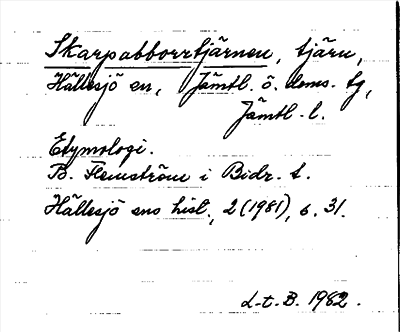 Skarpabborrtjärnen, tjärn,
Hällesjö sn, Jämtl. ö. doms. tg,
Jämtl. l.
Etymologi.
B. Flemström i Bidr. t.
Hällesjö sns hist., 2 (1981), s. 31.
L-t. B. 1982.